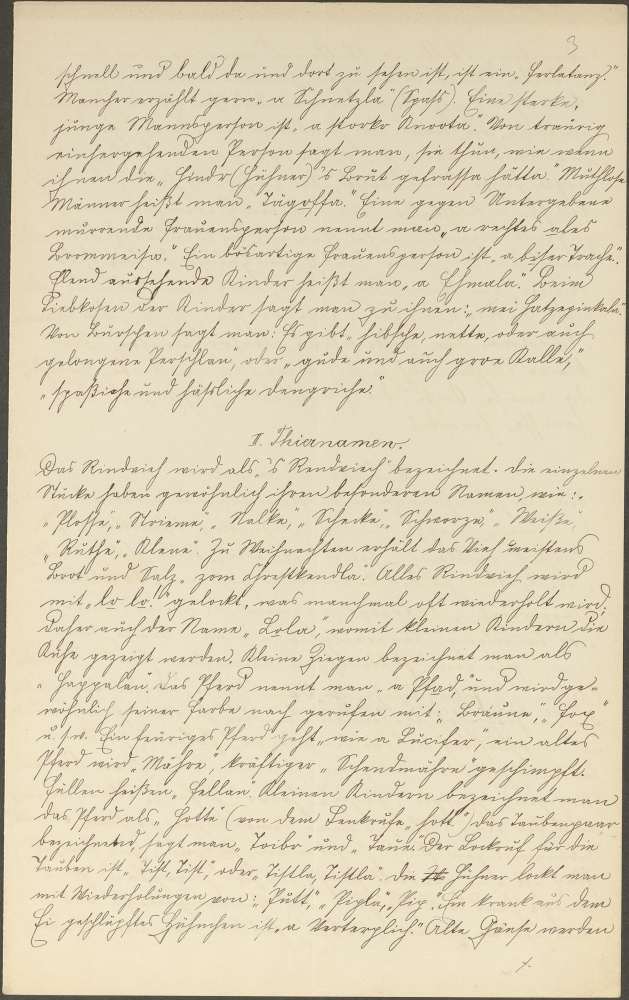 3
schnell und bald da und dort zu sehen ist, ist ein „Ferlatanz.“
Mancher erzählt gern „a Schnetzla“ (Spaß). Eine starke,
junge Mannsperson ist „a storkr Knoota.“ Von traurig
einhergehenden Person sagt man, sie thun, wie wenn
ihnen die „Hindr (Hühner) 's Brut gefrassa hätta.“ Muthlose
Männer heißt man „Tägoffa.“ Eine gegen Untergebene
murrende Frauensperson nennt man „a rechtes ales
Brommeisa.“ Ein bösartige Frauensperson ist „a biser Trache“.
Elend aussehende Kinder heißt man „a Ehmala“. Beim
Liebkosen der Kinder sagt man zu ihnen: „mei Hatzepinkala.“
Von Burschen sagt man: Es gibt „hibsche, nette, oder auch
gelongene Perschlan“, oder „gude und auch groe Kalle,“
„spaßiche und häßliche Dengriche.“
II. Thiernamen.
Das Rindvieh wird als „'s Rendviech“ bezeichnet. Die einzelnen
Stücke haben gewöhnlich ihren besonderen Namen, wie:
„Plosse“, „Strieme“, „Nalke“, „Schecke“, „Schworze“, „Weiße“,
„Ruthe“, „Klene“. Zu Weihnachten erhält das Vieh meistens
Brot und Salz „zom Chrestkendla“. Alles Rindvieh wird
mit „lo lo!“ gelockt, was manchmal oft wiederholt wird;
daher auch der Name „Lola“, womit kleinen Kindern die
Kühe gezeigt werden. Kleine Ziegen bezeichnet man als
„Happalan“. Das Pferd nennt man „a Pfad“ und wird ge-
wöhnlich seiner Farbe nach gerufen mit: „Braune“, „Fox“
u. s. w. Ein feuriges Pferd geht „wie a Lucifer“, ein altes
Pferd wird „Mähre“, kräftiger „Schendmähre“ geschimpft.
Füllen heißen „Fellan“. Kleinen Kindern bezeichnet man
das Pferd als „Hotte“ (von dem Lenkrufe „hott“). Das Taubenpaar
bezeichnend, sagt man „Toibr“ und „Taube“. Der Lockruf für die
Tauben ist „Tist, Tist“, oder „Tistla, Tistla“. Die Hühner lockt man
mit Wiederholungen von: „Putt“, „Pipla“, „Pip“. Ein krank aus dem
Ei geschlüpftes Hühnchen ist „a Verterplich.“ Alte Gänse werden